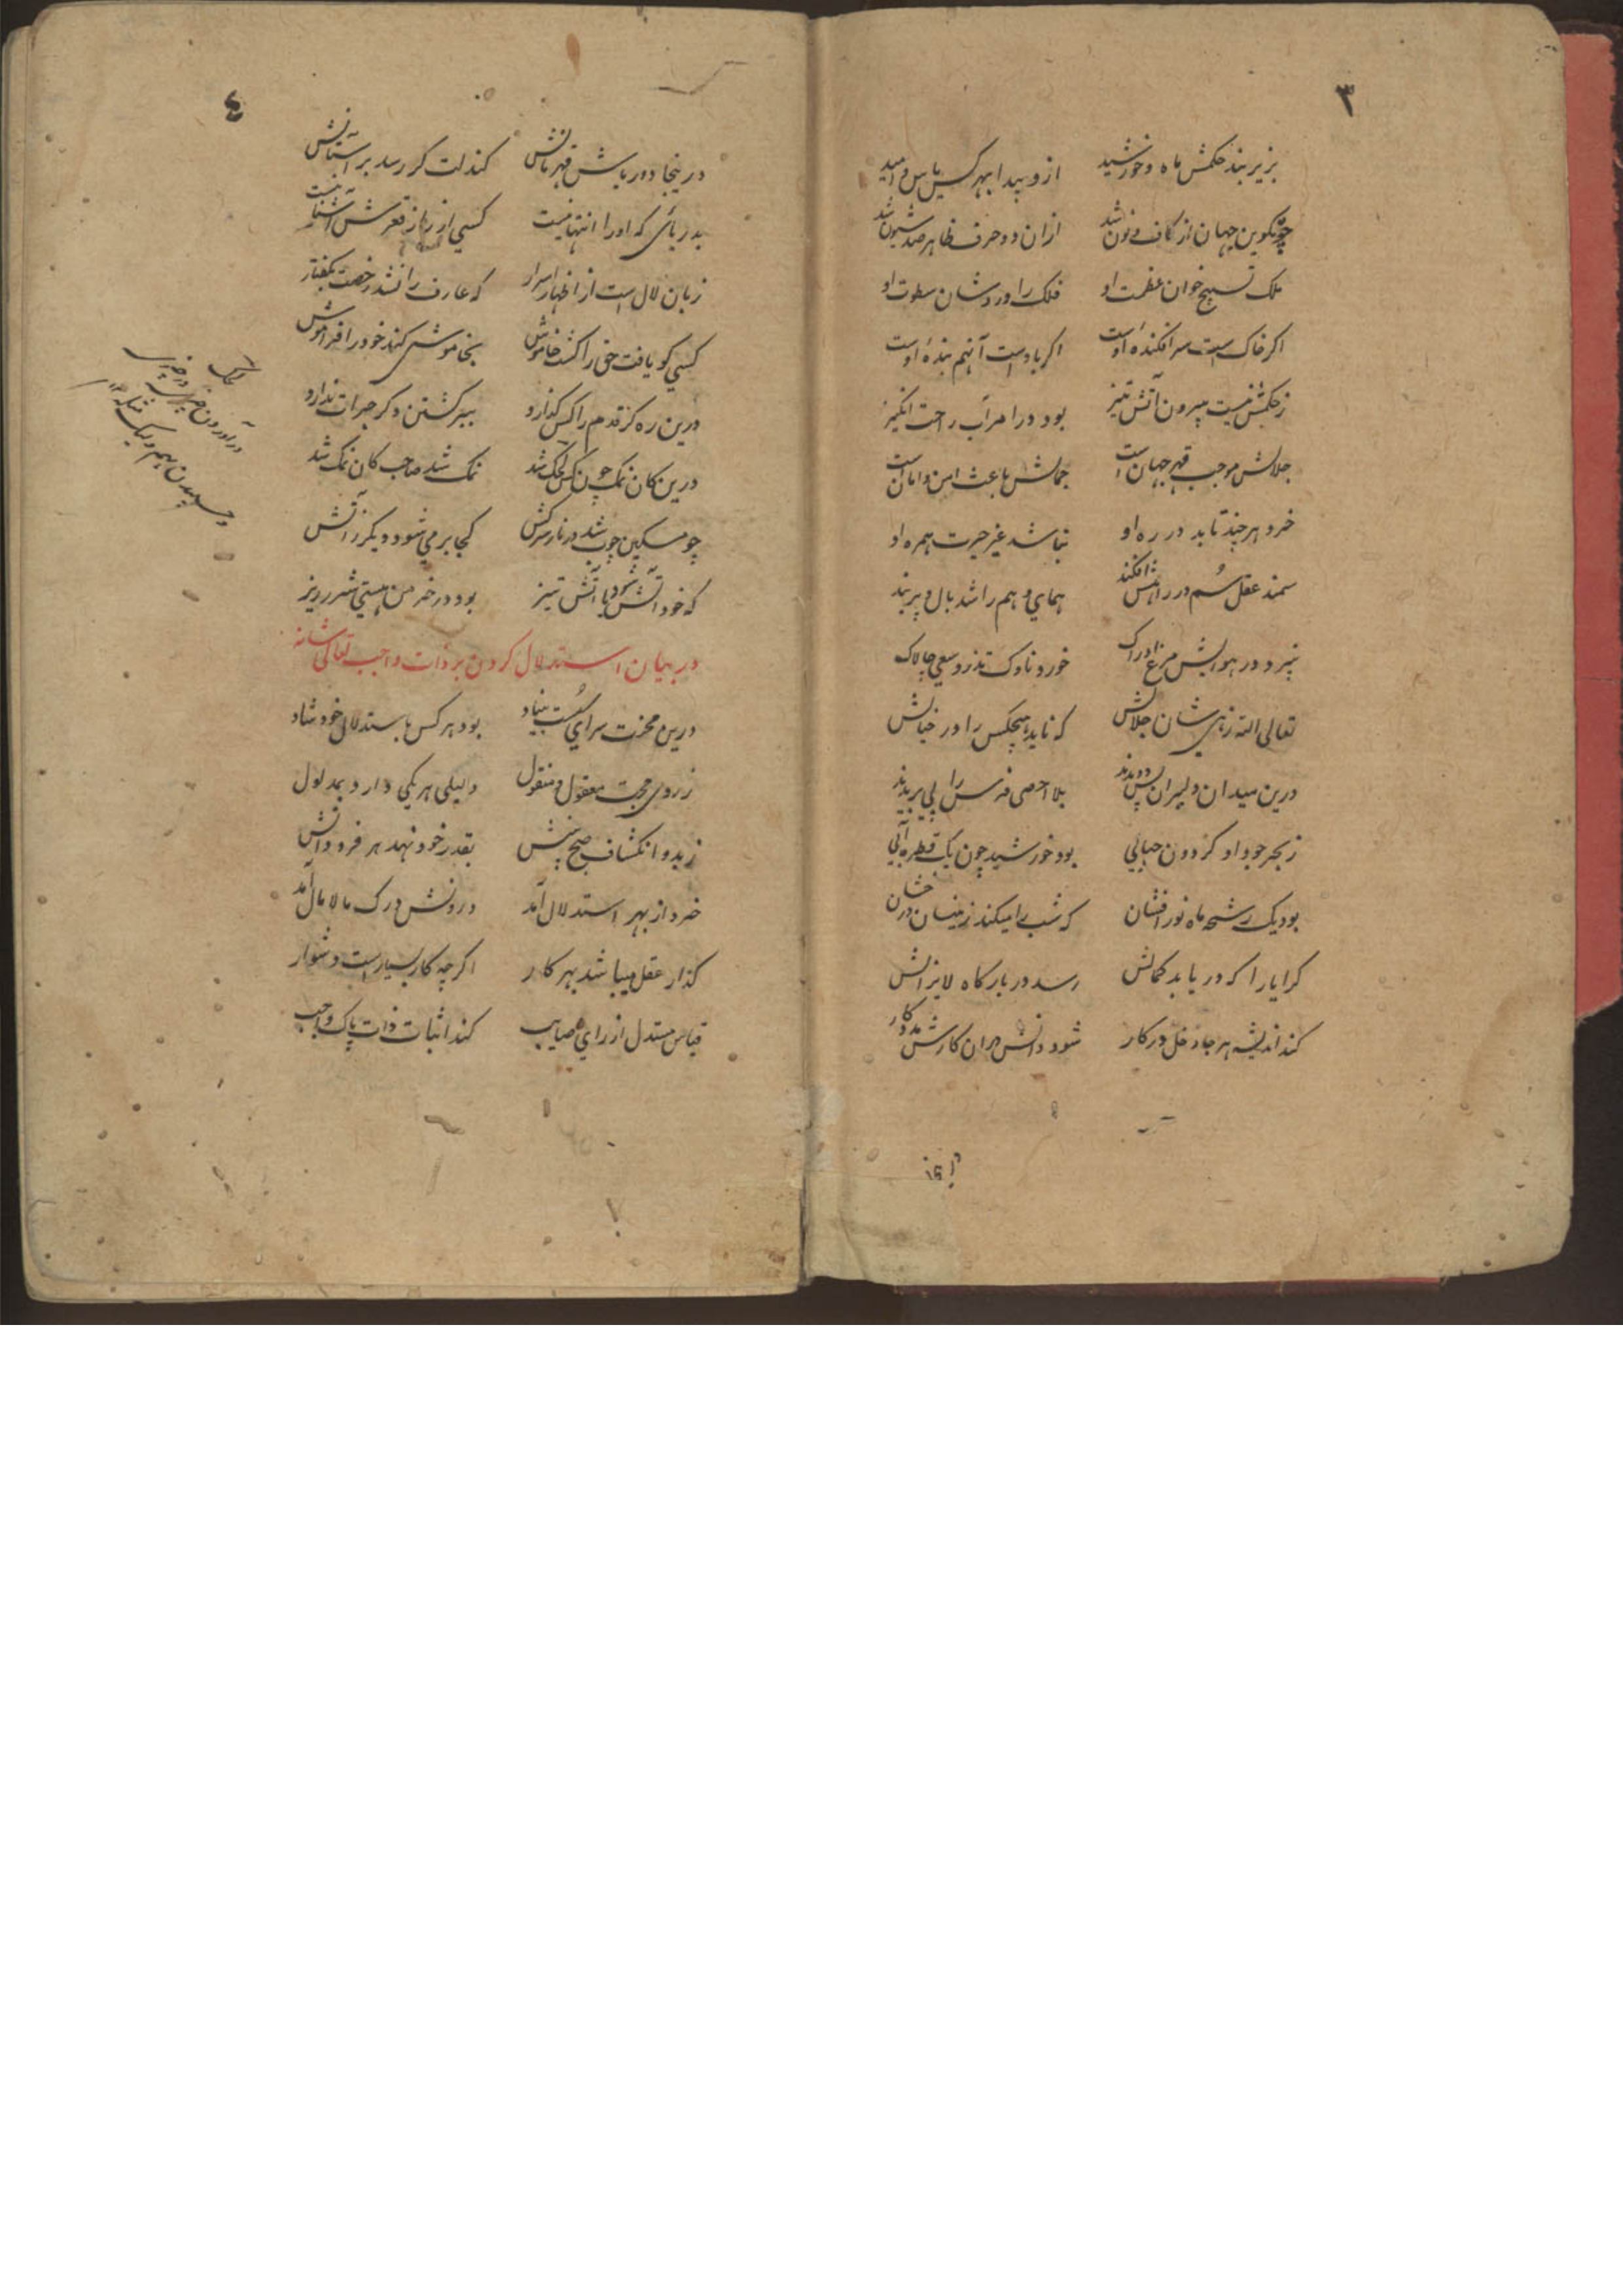 ٣
بزیر بند حکمش ماه و خورشید ازو پیدا بهر کس یاس و امید
چو تکوین جهان از کاف و نون شد ازان دو حرف ظاهر صد شیون شد
ملک تسبیح خوان عظمت او فلک را ورد شان سطوت او
اکر خاک است سرافکندهٔ اوست اکر باد است آنهم بندهٔ اوست
ز حکمش نیست بیرون آتش تیز بود در امر آب راحت انکیز
جلالش موجب قهر جهان است جمالش باعث امن و امان است
خرد هر چند تابد در ره او نباشد غیر حیرت همره او
سمند عقل سُم در راهش افکند همای وهم را شد بال و پر بند
نپرد در هوایش مرغ ادراک خورد ناوک تذرو سعی چالاک
تعالی الله زهی شان جلالش که ناید هیچکس را در خیالش
درین میدان دلیران پس دویدند بلا احصی فرس را پی بریدند
ز بحر جود او کردون حبابی بود خورشید چون یک قطره آبی
بود یک رشحه ماه نور افشان که شب را میکند زینسان درخشان
کرا یارا که دریابد کمالش رسد در بارکاه لایزالش
کند اندیشه هر جا دخل در کار شود دانش دران کارش مددکار
٤
درینجا دور باش قهرمانش کند لت کر رسد بر آستانش
بدریائی که او را انتها نیست کسی از راز قعرش آشنا نیست
زبان لال است از اظهار اسرار که عارف را نشد رخصت بکفتار
کسی کو یافت حق را کشت خاموش بخاموشی کند خود را فراموش
درین ره کز قدم را کس کذارد ببر کشتن دکر جرات ندارد
درین کان نمک چون کس کمک شد نمک شد صاحب کان نمک شد
چو مسکین چوب شد در نار سرکش کجا بر می شود دیکر ز آتش
که خود آتش شود با آتش تیز بود در خرمن هستی شرر ریز
در بیان استدلال کردن بر ذات واجب تعالی شانه
درین محنت سرای سُست بنیاد بود هر کس باستدلال خود شاد
ز روی حجت معقول و منقول دلیلی هر یکی دارد بمدلول
ز بدو انکشاف صبح بینش بقدر خود نهد هر فرد دانش
خرد از بهر استدلال آمد درونش درک مالامال آمد
کذار عقل میباشد بهر کار اکرچه کار بسیار است دشوار
قیاس مستدل از رای صایب کند اثبات ذات پاک واجب